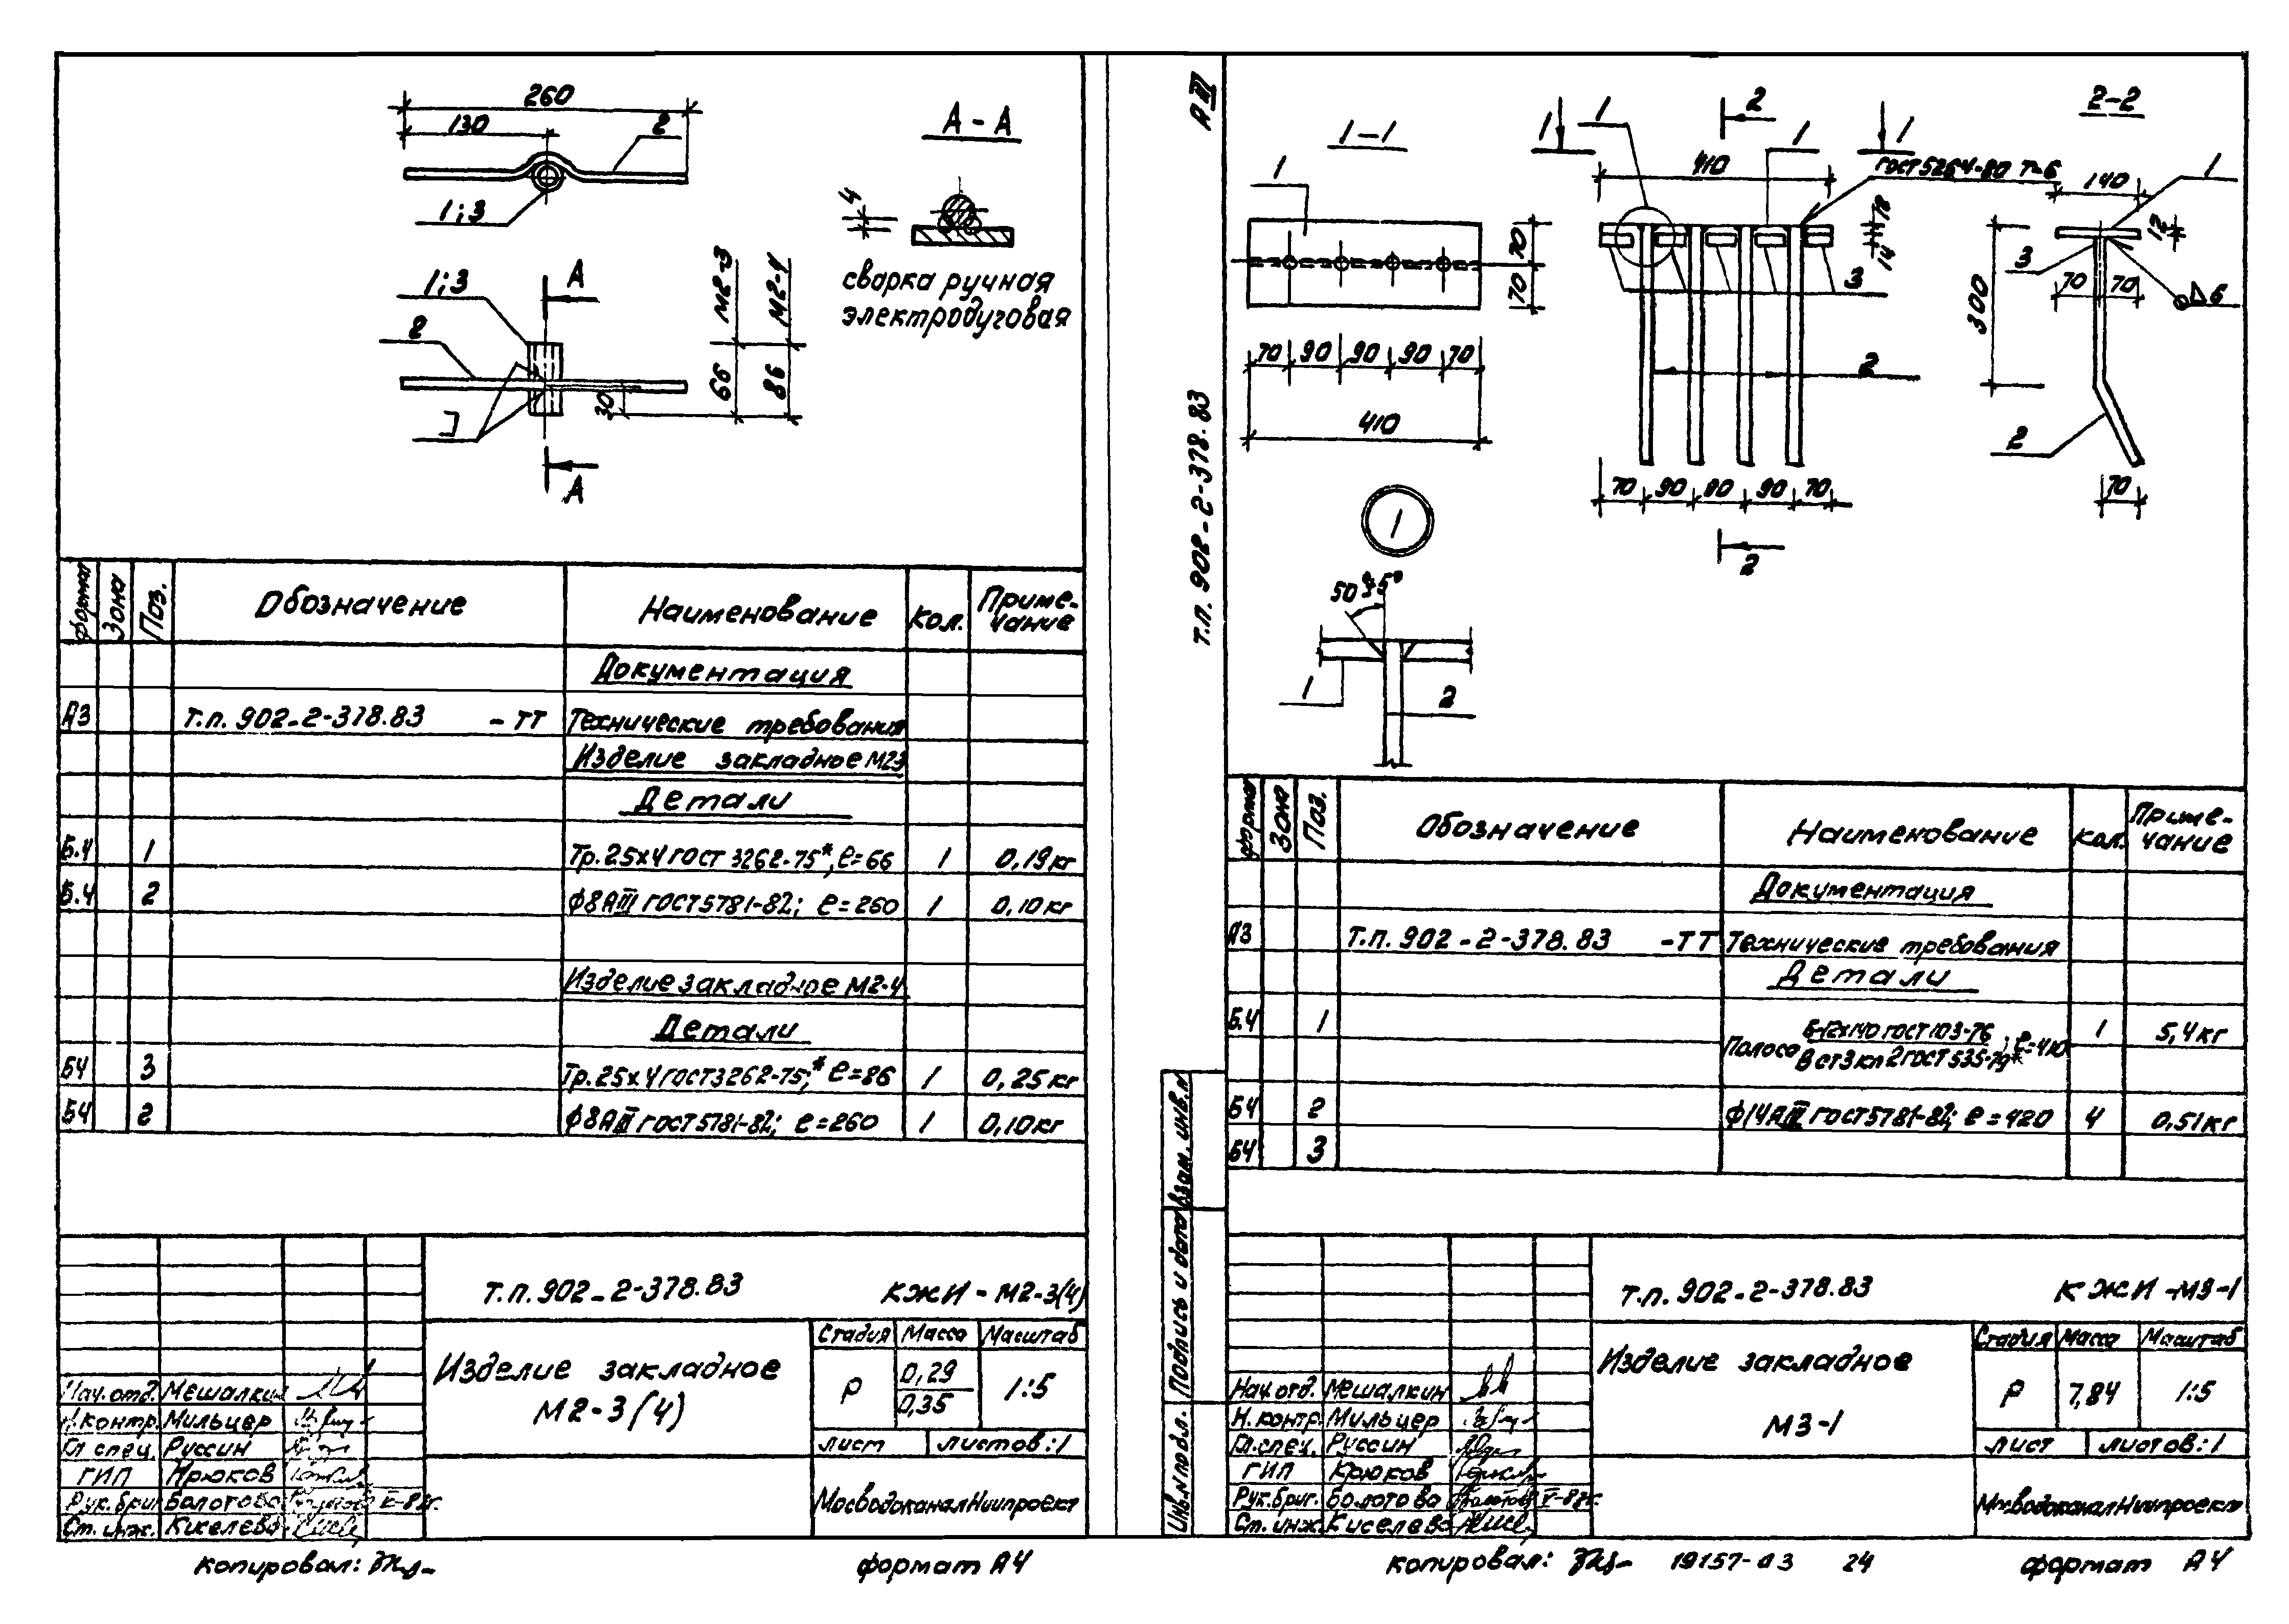 260
130
2
1;3
А - А
4
сварка ручная
электродуговая
1;3
А
2
М2-3
М2-4
66
86
30
А
Формат
Зона
Поз.
Обозначение
Наименование
Кол.
Приме-
чание
Документация
А3 Т.п. 902-2-378.83 -ТТ Технические требования
Изделие закладное М2-3
Детали
Б.4 1 Тр.25х4 ГОСТ 3262-75*, ℓ=66 1 0,19кг
Б.4 2 ф8АIII ГОСТ 5781-82; ℓ=260 1 0,10кг
Изделие закладное М2-4
Детали
Б4 3 Тр.25х4 ГОСТ 3262-75;* ℓ=86 1 0,25кг
Б4 2 ф8АIII ГОСТ 5781-82; ℓ=260 1 0,10кг
Т.п. 902-2-378.83 КЖИ - М2-3(4)
Изделие закладное
М2-3(4)
Стадия Масса Масштаб
Р 0,29 1:5
0,35
лист листов:1
МосводоканалНиипроект
Нач.отд. Мешалкин
Н.контр. Мильцер
Гл.спец. Руссин
ГИП Крюков
Рук.бриг. Болотова
Ст.инж. Киселева
копировал:
формат А4
А III
т.п. 902-2-378.83
1-1
1
70
70
70 90 90 90 70
410
1
1
2
1
1
410
ГОСТ 5264-80 Т-6
18
14
3
2
70 90 80 90 70
2
2-2
1
140
12
3
70 70
300
6
2
70
1
50°±5°
1
2
Формат
Зона
Поз.
Обозначение
Наименование
Кол.
Приме-
чание
Документация
А3 Т.п. 902-2-378.83 -ТТ Технические требования
Детали
Б.4 1 Полоса Б-12х140 ГОСТ 103-76 ; ℓ=410 1 5,4кг
В ст3кп2 ГОСТ 535-79*
Б4 2 ф14АIII ГОСТ 5781-82; ℓ=420 4 0,51кг
Б4 3
Взам. инв.N
Подпись и дата
Инв.N подл.
Т.п. 902-2-378.83 КЖИ-М3-1
Изделие закладное
М3-1
Стадия Масса Масштаб
Р 7,84 1:5
лист листов:1
МосводоканалНиипроект
Нач.отд. Мешалкин
Н.контр. Мильцер
Гл.спец. Руссин
ГИП Крюков
Рук.бриг. Болотова
Ст.инж. Киселева
копировал:
19157-03 24
формат А4